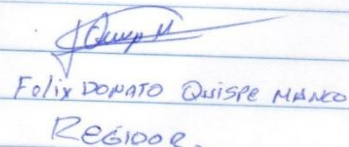 Felix DONATO QUISPE MANCO
REGIDOR.